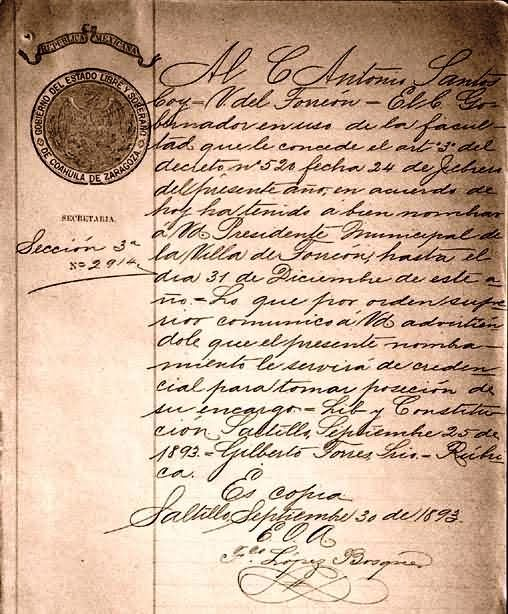 REPUBLICA MEXICANA
GOBIERNO DEL ESTADO LIBRE Y SOBERANO
DE COAHUILA DE ZARAGOZA
SECRETARIA.
Sección 3ª
Nº 2914
Al C Antonio Santos
Coy = V. del Torreón = El C. Go-
bernador en uso de la facul-
tad que le concede el artº 3º del
decreto nº 520 fecha 24 de febrero
del presente año, en acuerdo de
hoy ha tenido á bien nombrar
á Vd Presidente Municipal de
la Villa de Torreon, hasta el
dia 31 de Diciembre de este a-
ño. = Lo que por orden supe-
rior comunico á Vd advirtien
dole que el presente nombra-
miento le servirá de creden-
cial para tomar poseción de
su encargo = Lib y Constitu
cion Saltillo, Septiembre 25 de
1893 = Gilberto Torres, Srio. = Rúbri
ca.
Es copia
Saltillo, Septiembre 30 de 1893.
E. O. A
López Bosque